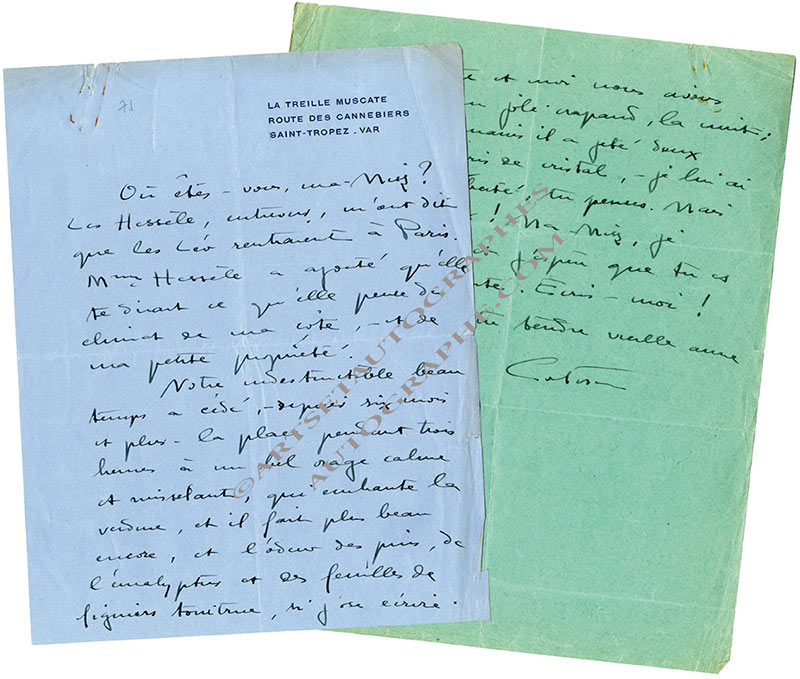 71
LA TREILLE MUSCATE
ROUTE DES CANNEBIERS
SAINT-TROPEZ . VAR
Où êtes-vous, ma
Les Hessèle, entrevus, m'ont dit
que les Léo rentraient à Paris.
Mme Hessèle a ajouté qu'elle
te dirait ce qu'elle pense du
climat de ma côte, - et de
ma petite propriété.
Notre indestructible beau
temps a cédé, - depuis six mois
et plus - la place pendant trois
heures à un bel orage calme
et ruisselant, qui enchante la
verdure, et il fait plus beau
encore, et l'odeur des pins, de
l'eucalyptus et des feuilles de
figuiers tonitrue, si j'ose écrire.
et moi nous avons
joli crapaud, la nuit ;
il a jeté deux
de cristal, - je lui ai
tu penses. Mais
! Ma je
que tu es
. Ecris-moi !
tendre vieille amie
Colette
©ARTSETAUTOGRAPHES
AUTOGRAPHE.COM